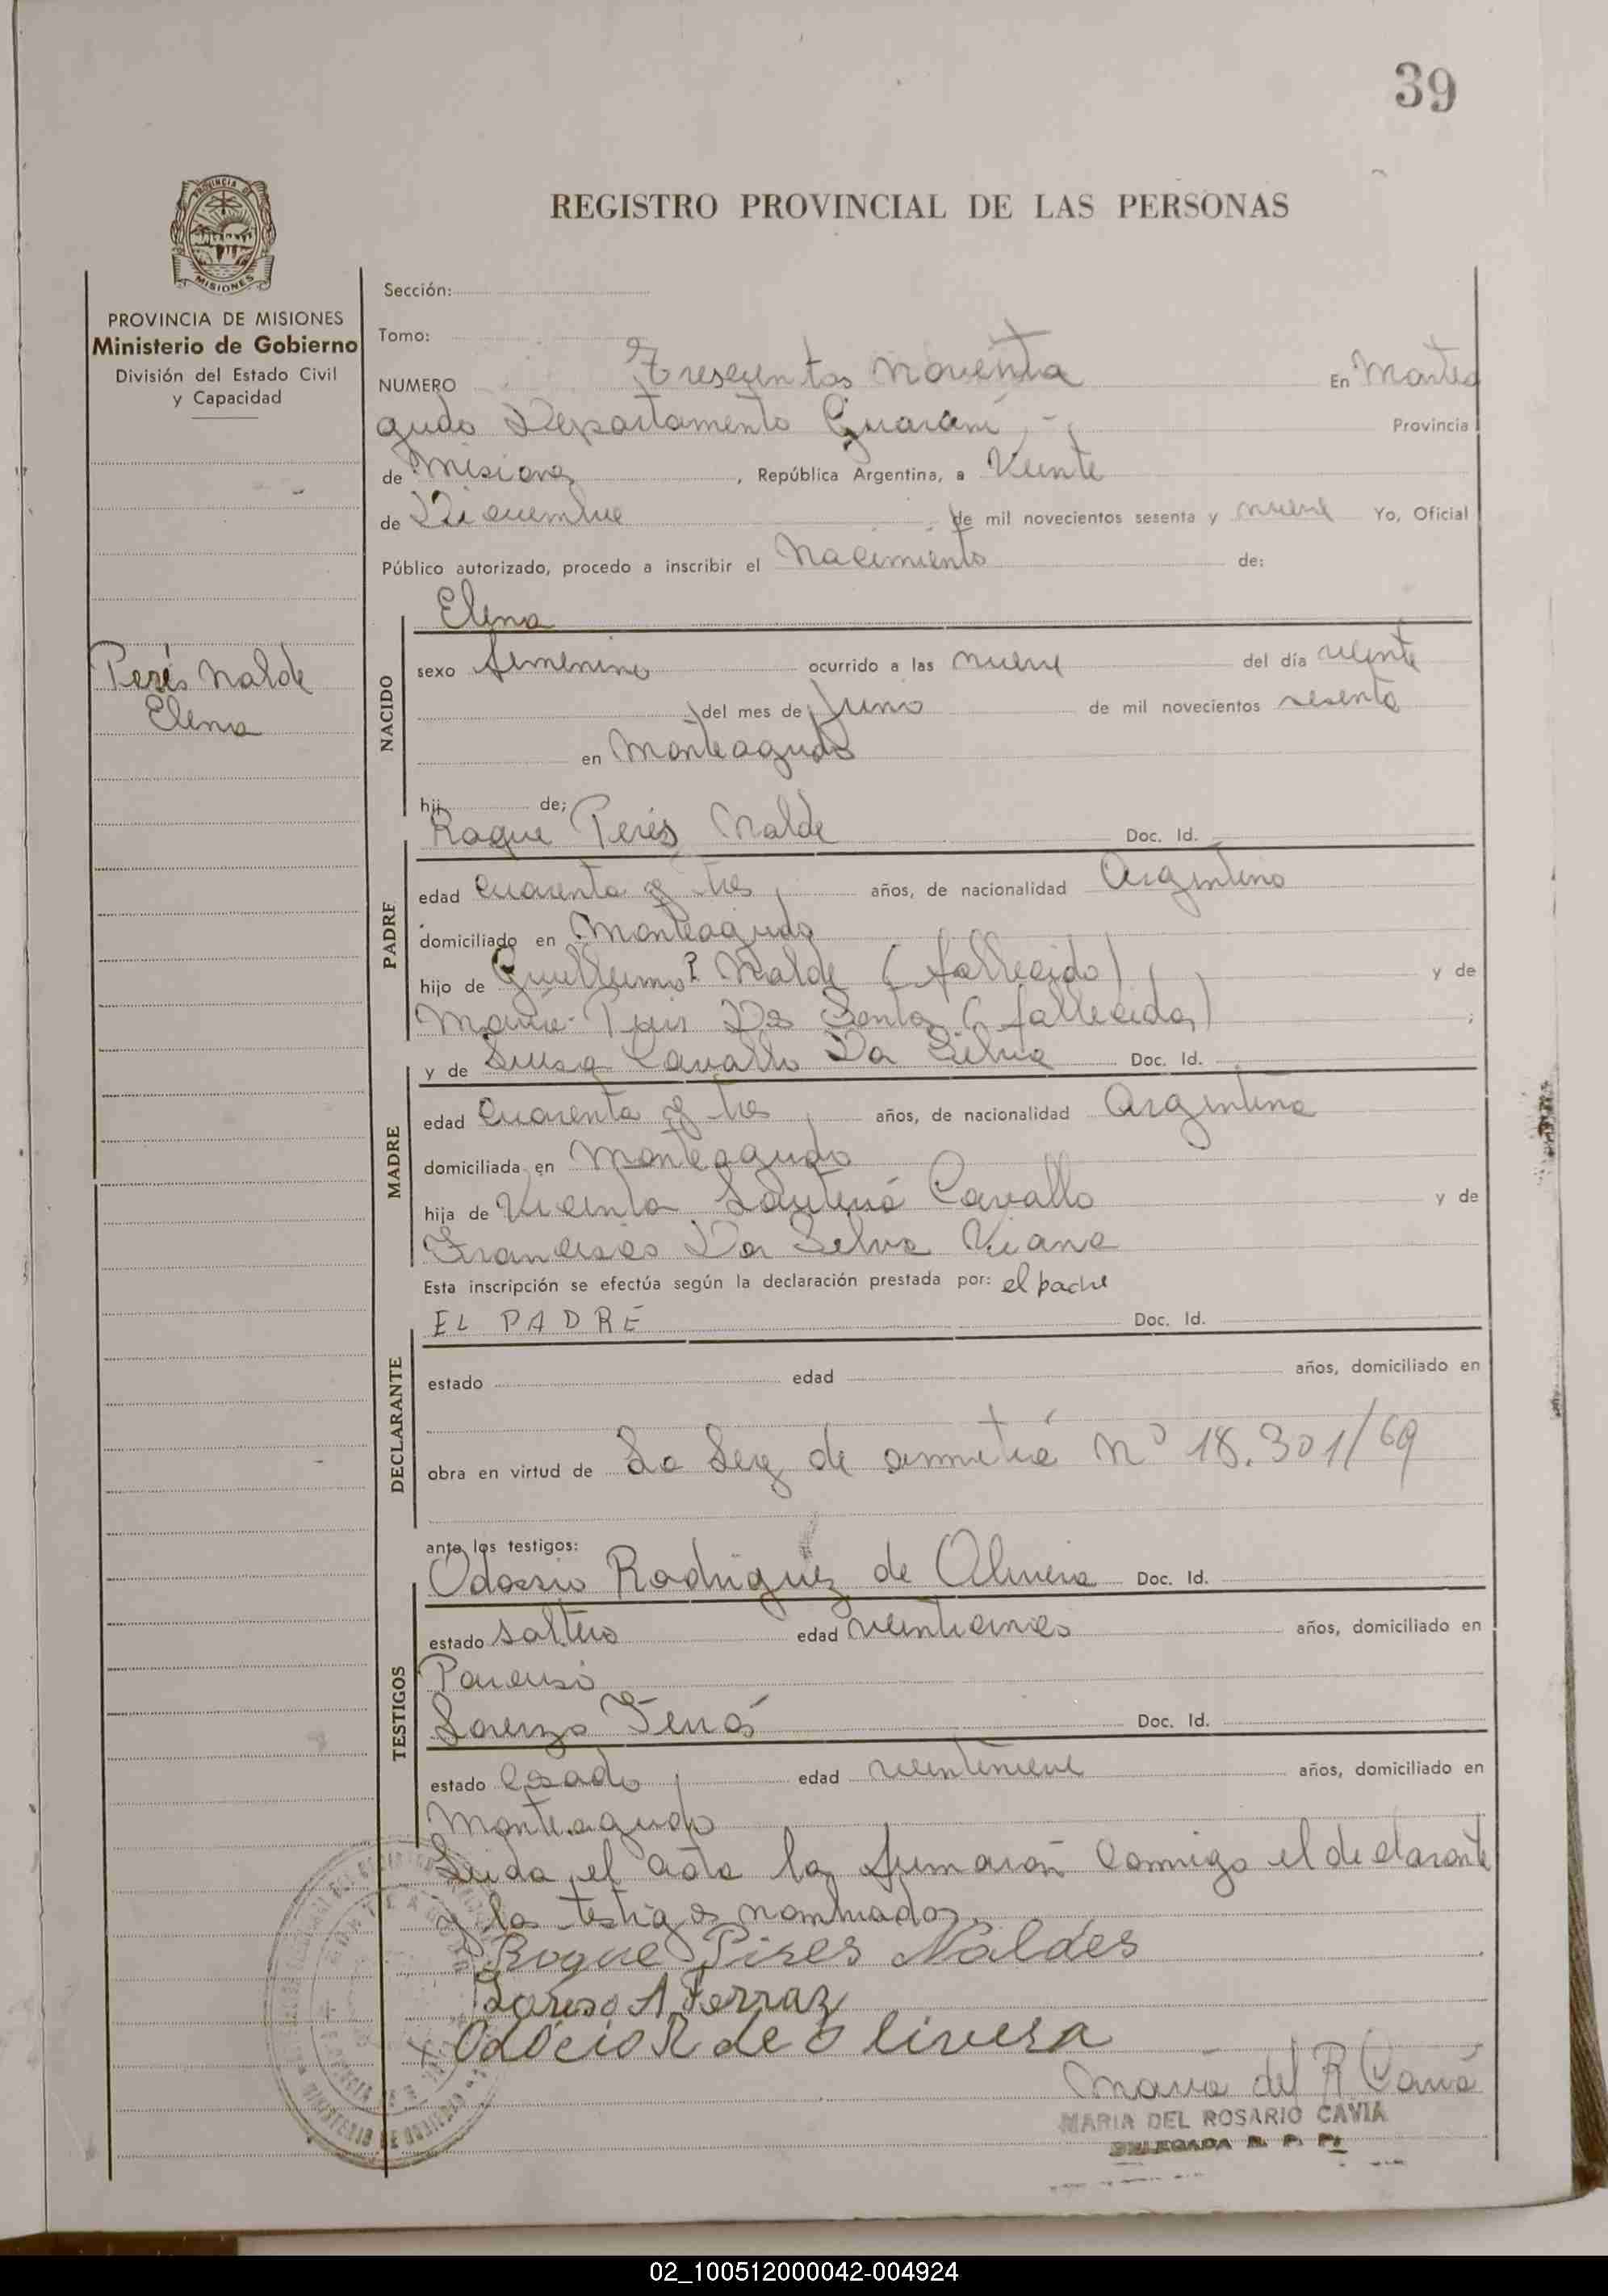 39
REGISTRO PROVINCIAL DE LAS PERSONAS
PROVINCIA DE
MISIONES
PROVINCIA DE MISIONES
Ministerio de Gobierno
División del Estado Civil
y Capacidad
Perés Nalde
Elena
Sección:
Tomo:
NUMERO Trescientos Noventa En Montea
gudo Departamento Guaraní Provincia
de Misiones, República Argentina, a Veinte
de Diciembre de mil novecientos sesenta y nueve Yo, Oficial
Público autorizado, procedo a inscribir el Nacimiento de:
NACIDO
Elena
sexo femenino ocurrido a las nueve del día veinte
del mes de Junio de mil novecientos sesenta
en Monteagudo
hij de;
PADRE
Roque Perés Nalde Doc. Id.
edad cuarenta y tres años, de nacionalidad Argentino
domiciliado en Monteagudo
hijo de Guillermo P. Nalde (fallecido) y de
María Dos Santos (fallecida) ;
MADRE
y de Cavallo Da Silva Doc. Id.
edad cuarenta y tres años, de nacionalidad Argentina
domiciliada en Monteagudo
hija de Cavallo y de
Da Silva Viana
Esta inscripción se efectúa según la declaración prestada por: el padre
DECLARANTE
EL PADRE Doc. Id.
estado edad años, domiciliado en
obra en virtud de La Ley de amnistía Nº 18.301/69
ante los testigos:
TESTIGOS
Odassio Rodriguez de Olivera Doc. Id.
estado soltero edad veinticinco años, domiciliado en
Paraiso
Lorenzo Ferrás Doc. Id.
estado casado edad veintinueve años, domiciliado en
Monteagudo
Leida el acta la firmarón conmigo el declarante
y los testigos nombrados
Roque Pires Naldes
Lorenso A Ferraz
Odócio R de Olivera
María del R Cavia
MARIA DEL ROSARIO CAVIA
DELEGADA R. P. P.
02_100512000042-004924